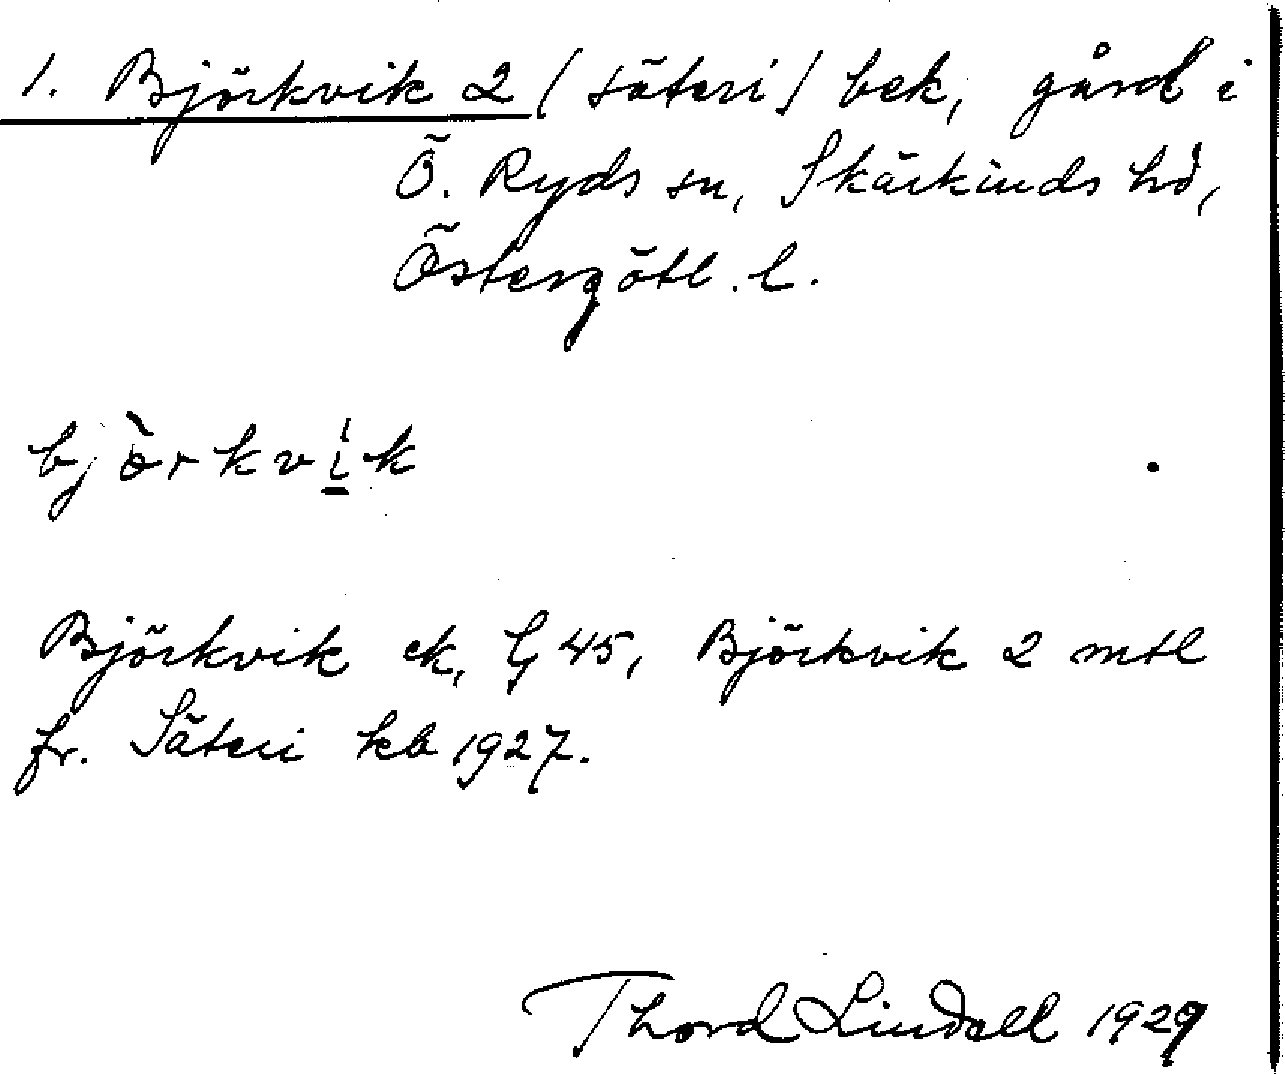 1. Björkvik 2 (säteri) bek, gård i
Ö. Ryds sn, Skärkinds hd,
Östergötl. l.
bjòrkvi̲k
Björkvik ek, G 45, Björkvik 2 mtl
fr. Säteri kb 1927.
Thord Lindell 1929